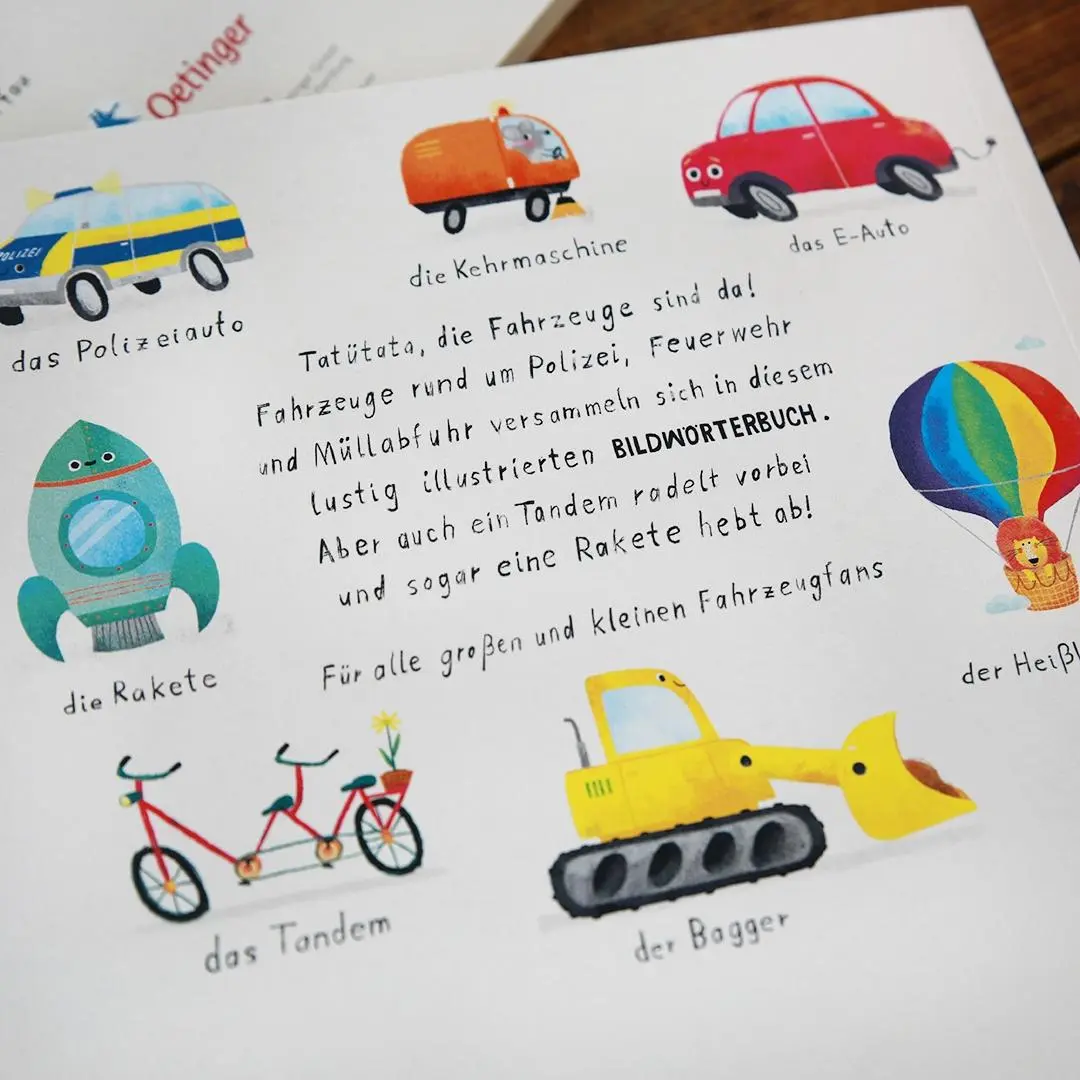 Oetinger
POLIZEI
das Polizeiauto
die Kehrmaschine
das E-Auto
Tatütata, die Fahrzeuge sind da!
Fahrzeuge rund um Polizei, Feuerwehr
und Müllabfuhr versammeln sich in diesem
lustig illustrierten BILDWÖRTERBUCH.
Aber auch ein Tandem radelt vorbei
und sogar eine Rakete hebt ab!
Für alle großen und kleinen Fahrzeugfans
die Rakete
der Heißl
das Tandem
der Bagger